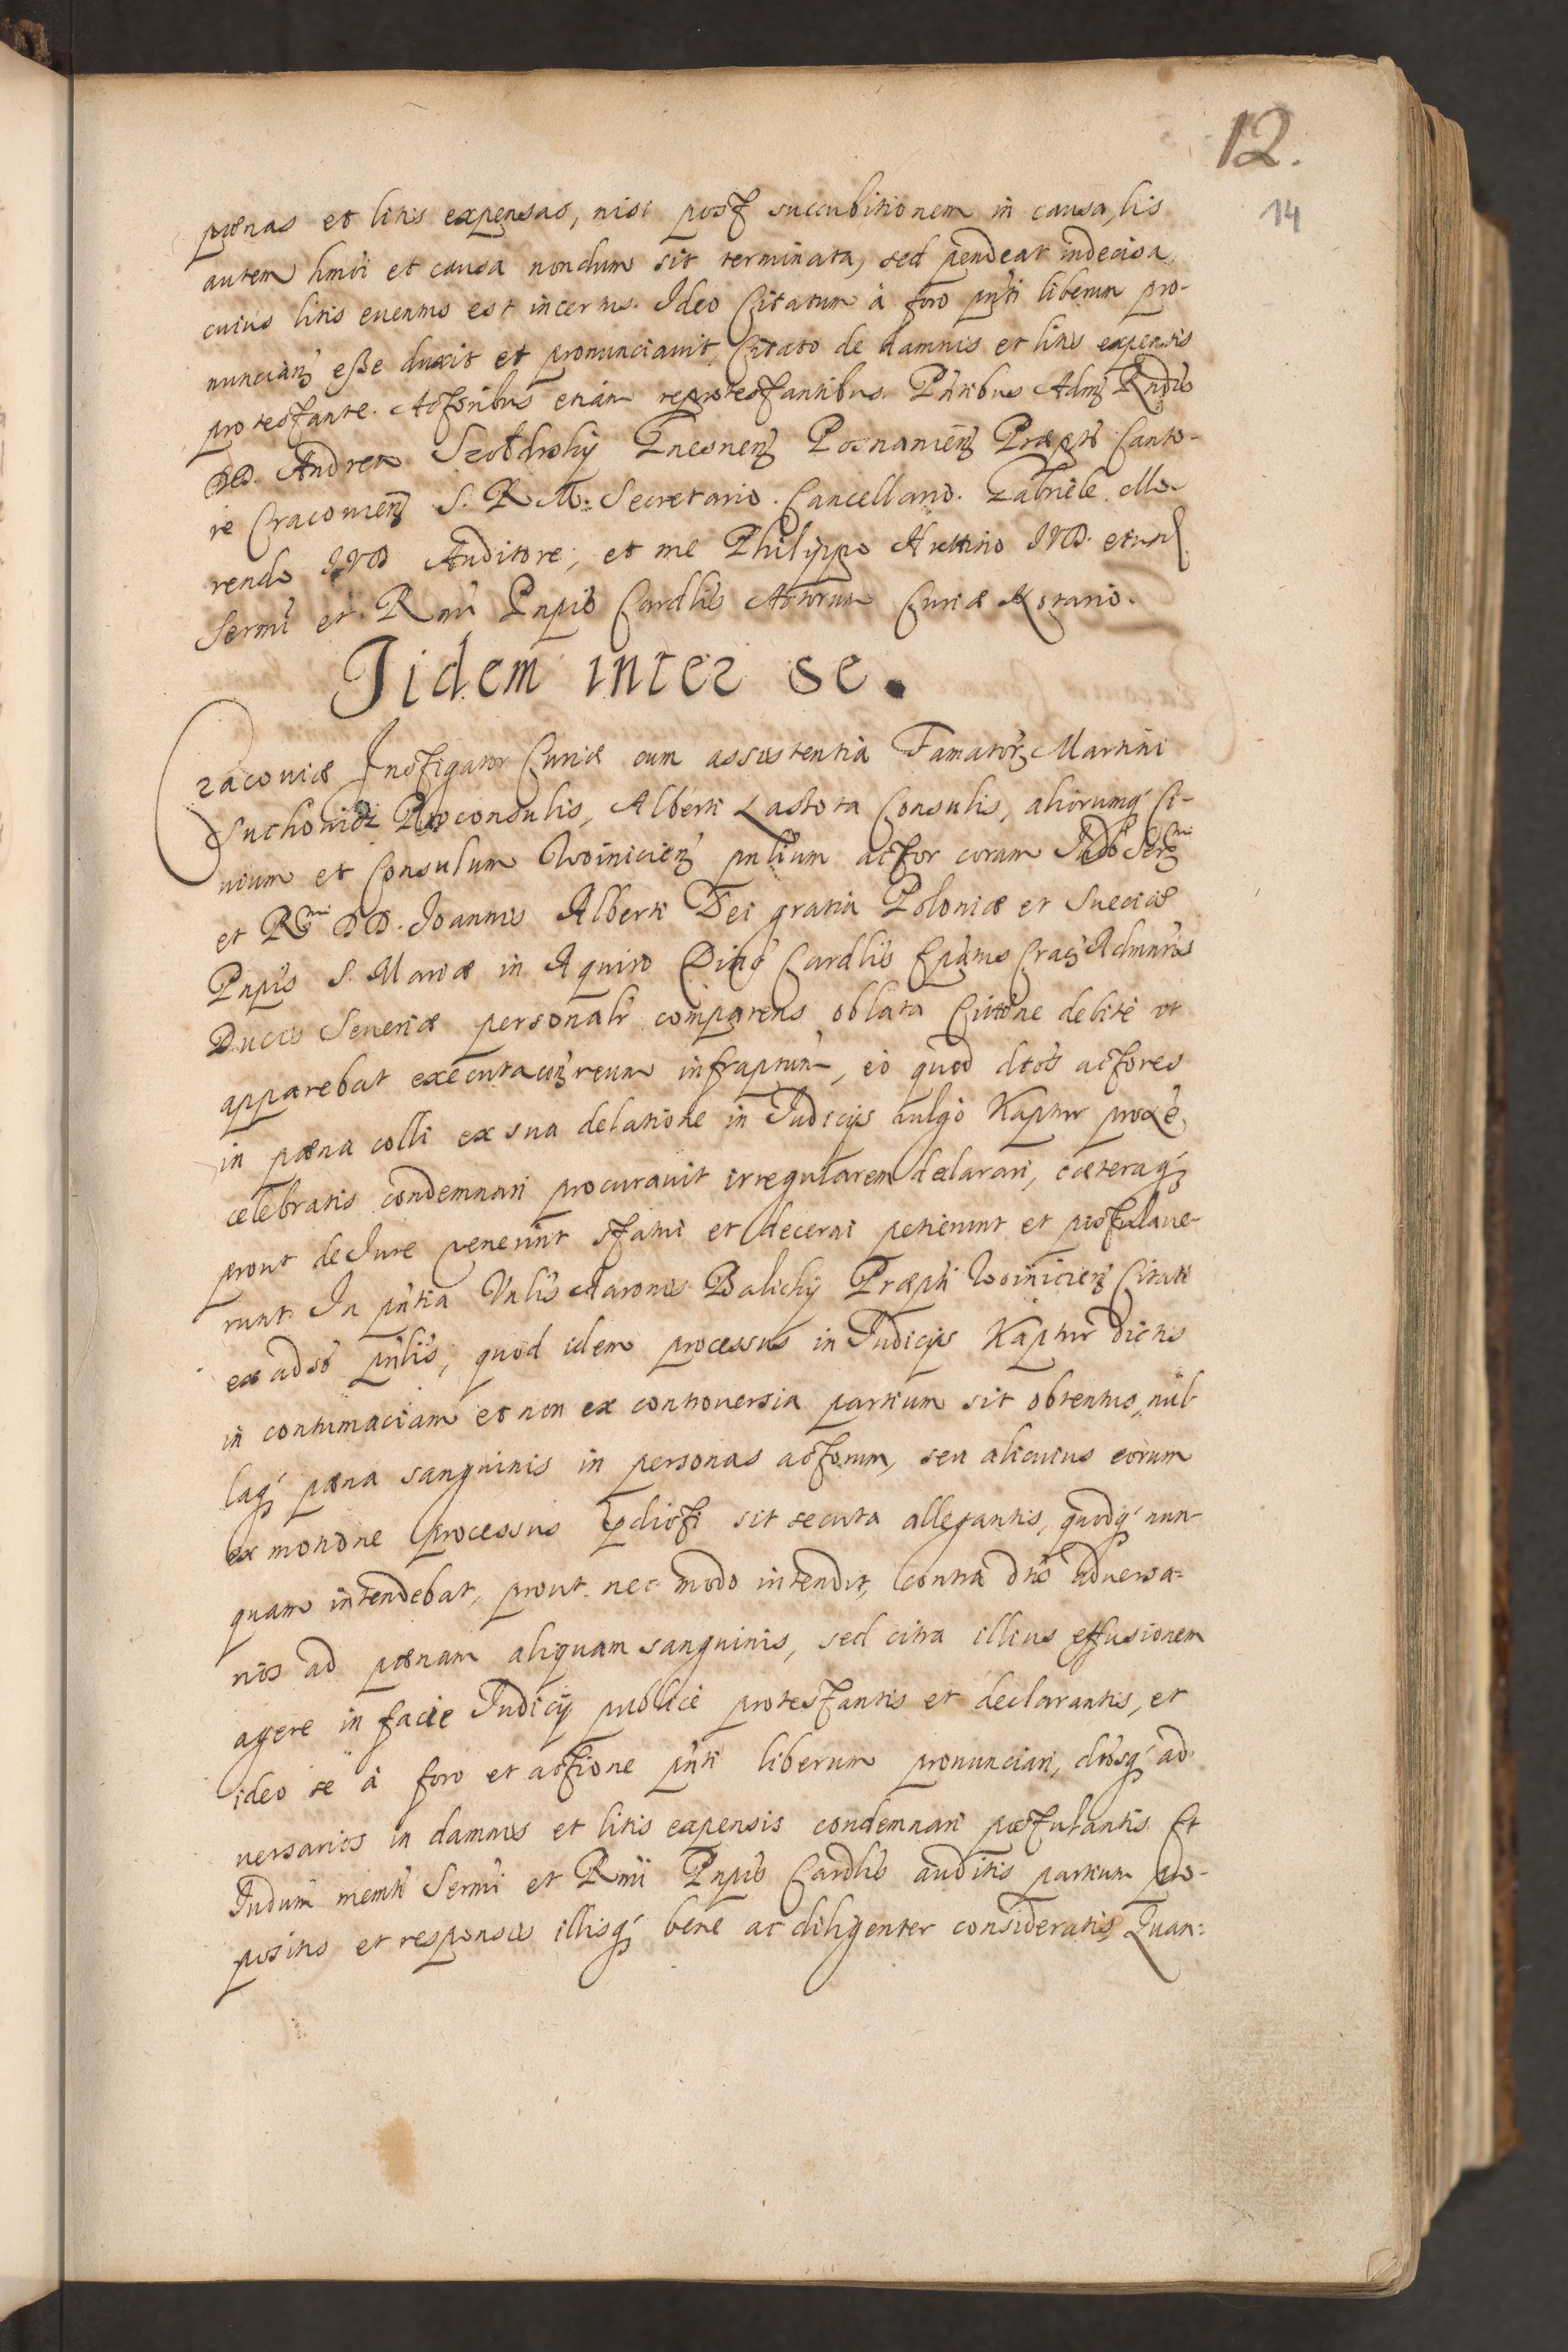 12.
14
pœnas et litis expensas, nisi post succubitionem in causa, lis
autem hmoi et causa nondum sit terminata, sed pendeat indecisa
cuius litis euentus est incertus. Ideo Citatum à foro pn̄ti liberum pro-
nunciand esse duxit et pronunciauit, Citato de damnis et litis expensis
protestante. Actoribus etiam reprotestantibus. Pn̄tibus Adm Rndis
DD. Andrea Szołdrsky Gnesnen Posnanien Præpto Canto-
re Cracouien S. R. M. Secretario. Cancellario. Gabriele Me-
rendo IVD Auditore, et me Philippo IVD. et
Sermi et Rmi Pnpis Cardlis Actorum Curiæ Notario.
Iidem inter se.
Cracouiæ Instigator Curiæ cum assistentia Famator Martini
Suchonicz Proconsulis, Alberti Lastota Consulis, aliorumq Ci-
uium et Consulum Woinicien pnlium actor coram Iudo Sermi
et Rmi DD. Joannis Alberti Dei gratia Poloniæ et Sueciæ
Pnpis S. Mariæ in Aquiro Diac Cardlis Epatus Crac Admnris
Ducis Seueriæ personalr comparens oblata Cittone debite vt
apparebat executa con reum infraptum, eo quod dtos actores
in pœna colli ex sua delatione in Iudicijs vulgo Kaptur proxe
celebratis condemnari procurauit irregularem declarari, cæteraq
prout de Iure venerint statui et decerni petierunt et postulaue-
runt. In pn̄tia Vnlis Aaronis Balicky Præpti Woinicien Citati
ex adso pn̄lis, quod idem processus in Iudicijs Kaptur dictis
in contumaciam et non ex controuersia partium sit obtentus, nul-
laq pœna sanguinis in personas actorum, seu alicuius eorum
ex motione processus pdicti sit secuta allegantis, quodq nun-
quam intendebat, prout nec modo intendit, contra dtos aduersa-
rios ad pœnam aliquam sanguinis, sed citra illius effusionem
agere in facie Iudicij publice protestantis et declarantis, et
ideo se à foro et actione pn̄ti liberum pronunciari, dtosq ad-
uersarios in damnis et litis expensis condemnari postulantis. Et
Iudum memti Sermi et Rmi Pnpis Cardlis auditis partium pro-
positis et responsis illisq bene ac diligenter consideratis, Quan-